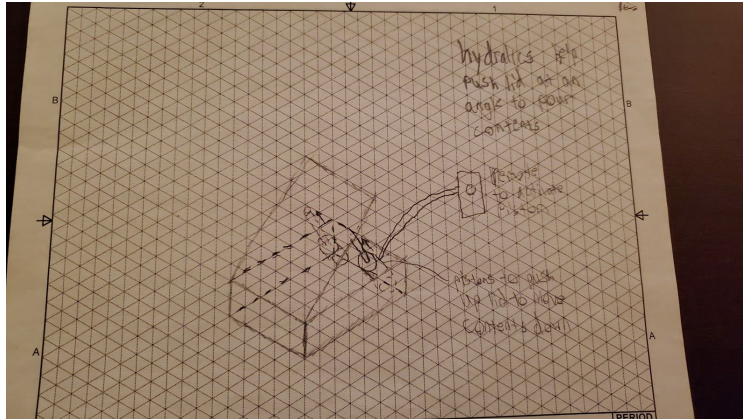 2
1
B
B
hydralics help
push lid at an
angle to pour
contents
Remote
to activate
Piston
pistons to push
up lid to move
contents down
A
A
PERIOD